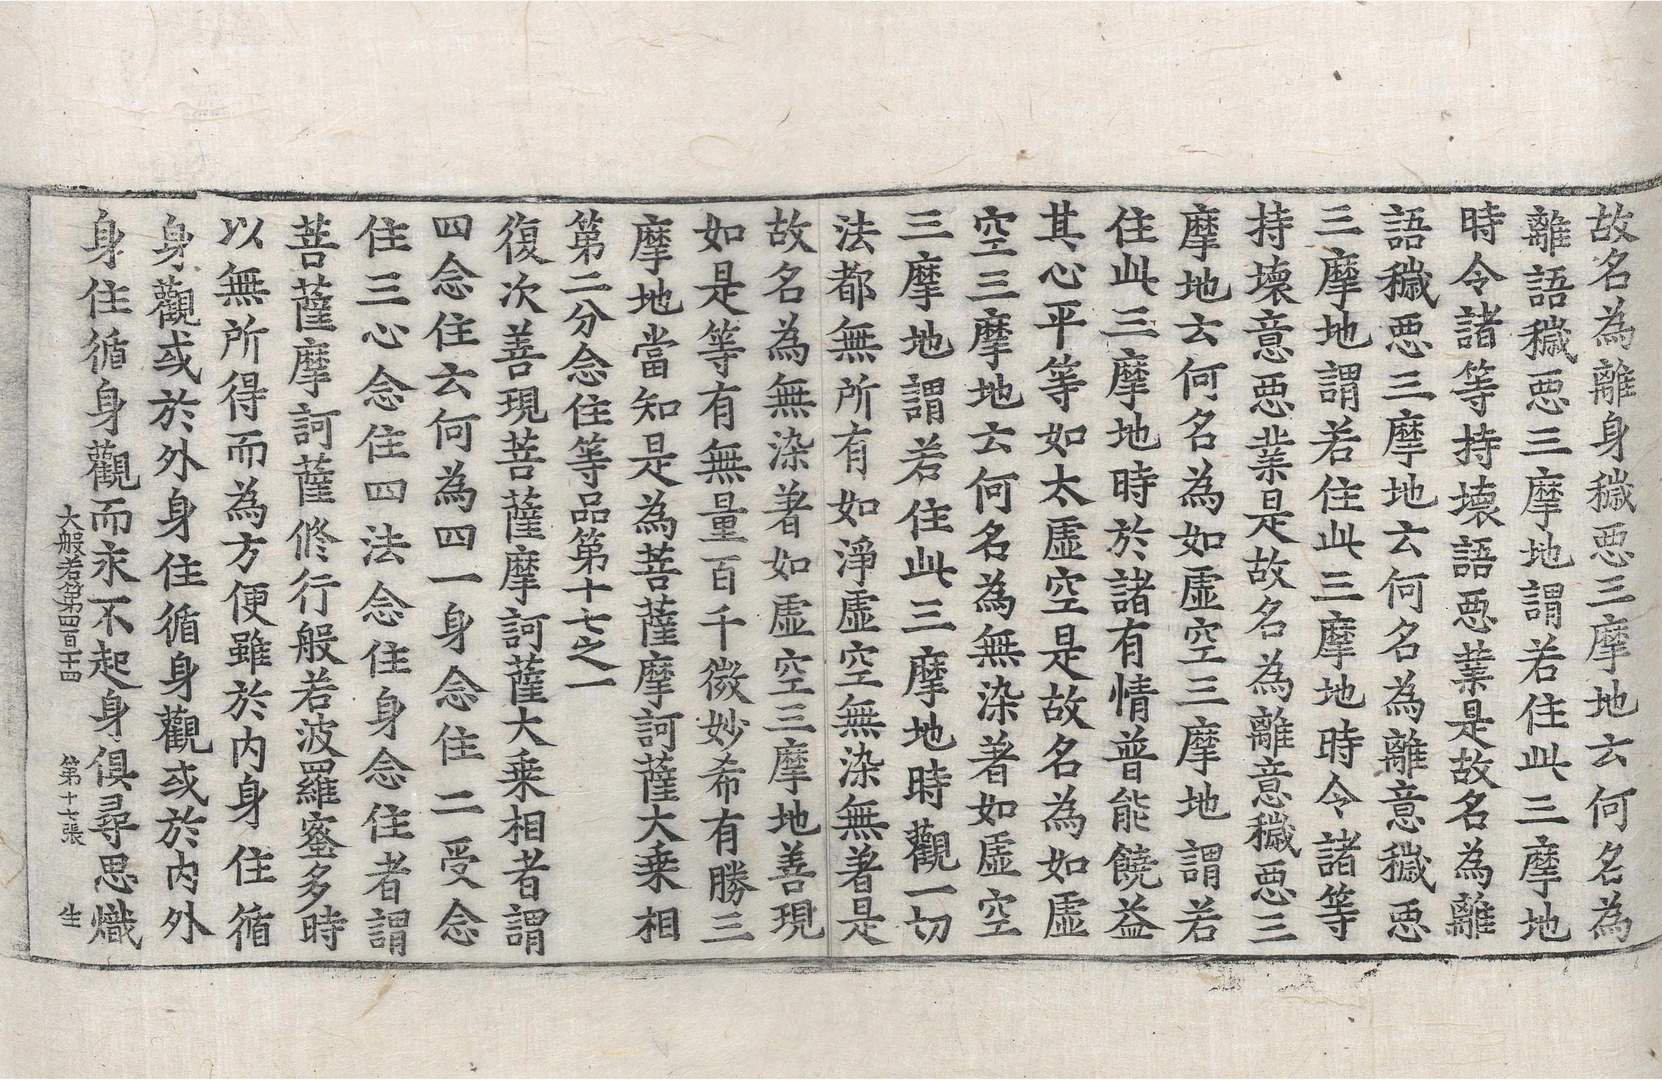 故名為離身穢惡三摩地云何名為
離語穢惡三摩地謂若住此三摩地
時令諸等持壞語惡業是故名為離
語穢惡三摩地云何名為離意穢惡
三摩地謂若住此三摩地時令諸等
持壞意惡業是故名為離意穢惡三
摩地云何名為如虛空三摩地謂若
住此三摩地時於諸有情普能饒益
其心平等如太虛空是故名為如虛
空三摩地云何名為無染著如虛空
三摩地謂若住此三摩地時觀一切
法都無所有如淨虛空無染無著是
故名為無染著如虛空三摩地善現
如是等有無量百千微妙希有勝三
摩地當知是為菩薩摩訶薩大乗相
第二分念住等品第十七之一
復次善現菩薩摩訶薩大乗相者謂
四念住云何為四一身念住二受念
住三心念住四法念住身念住者謂
菩薩摩訶薩修行般若波羅蜜多時
以無所得而為方便雖於内身住循
身觀或於外身住循身觀或於内外
身住循身觀而永不起身俱尋思熾
大般若第四百十四 第十七張 生